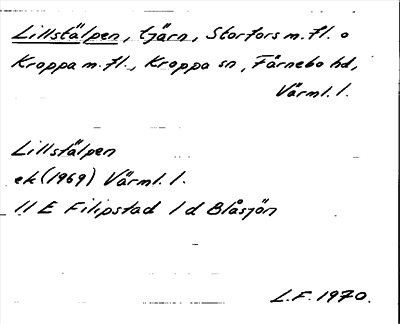 Lillstälpen, tjärn, Storfors m.fl. o
Kroppa m.fl., Kroppa sn, Färnebo hd,
Värml. l.
Lillstälpen
ek (1969) Värml. l.
11 E Filipstad 1 d Blåsjön
L.F. 1970.